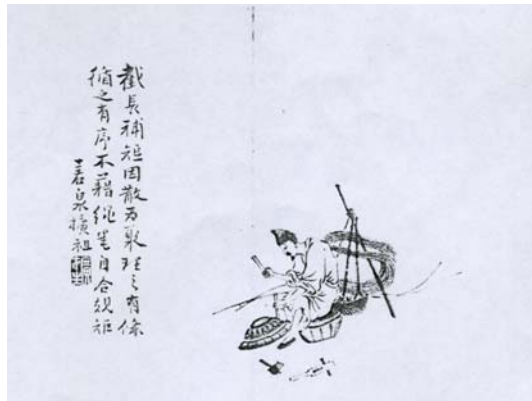 截長補短因散為聚理之有條
循之有序不藉繩墨自合規矩
嘉泉擴祖